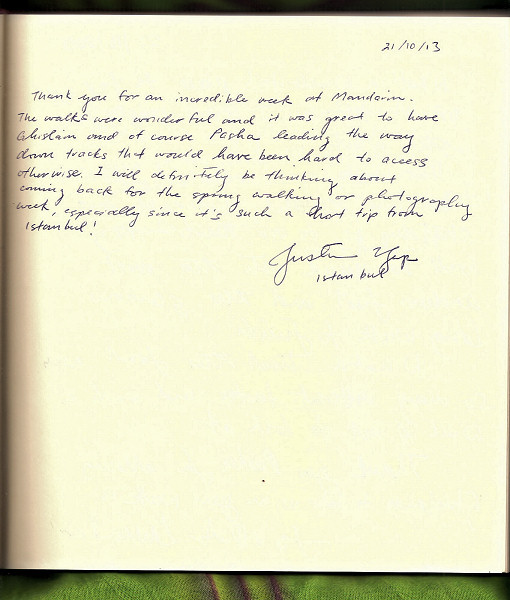 21/10/13
Thank you for an incredible week at Mandarin.
The walks were wonderful and it was great to have
Ghislain and of course Pasha leading the way
down tracks that would have been hard to access
otherwise. I will definitely be thinking about
coming back for the spring walking or photography
week, especially since it's such a short trip from
Istanbul!
Justin Yep
Istanbul